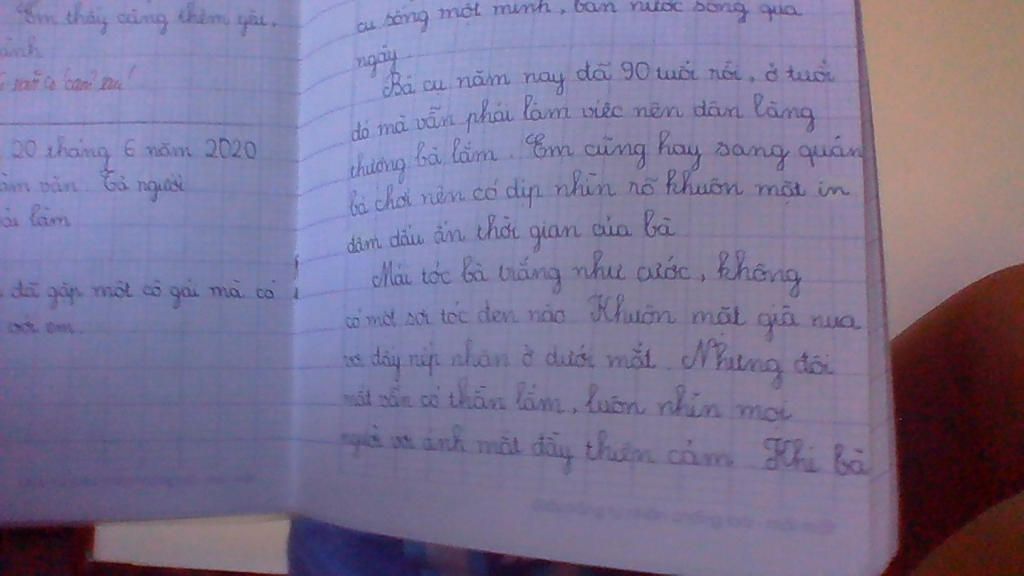 Em thấy càng thêm yêu,
ảnh
20 tháng 6 năm 2020
làm văn Tả người
ài làm
đã gặp một cô gái mà có
với em.
cụ sống một mình, bán nước sống qua
ngày.
Bà cụ năm nay đã 90 tuổi rồi, ở tuổi
đó mà vẫn phải làm việc nên dân làng
thương bà lắm. Em cũng hay sang quán
bà chơi nên có dịp nhìn rõ khuôn mặt in
đậm dấu ấn thời gian của bà
Mái tóc bà trắng như cước, không
có một sợi tóc đen nào Khuôn mặt già nua
với đầy nếp nhăn ở dưới mắt. Nhưng đôi
mắt vẫn có thần lắm, luôn nhìn mọi
người với ánh mắt đầy thiện cảm Khi bà